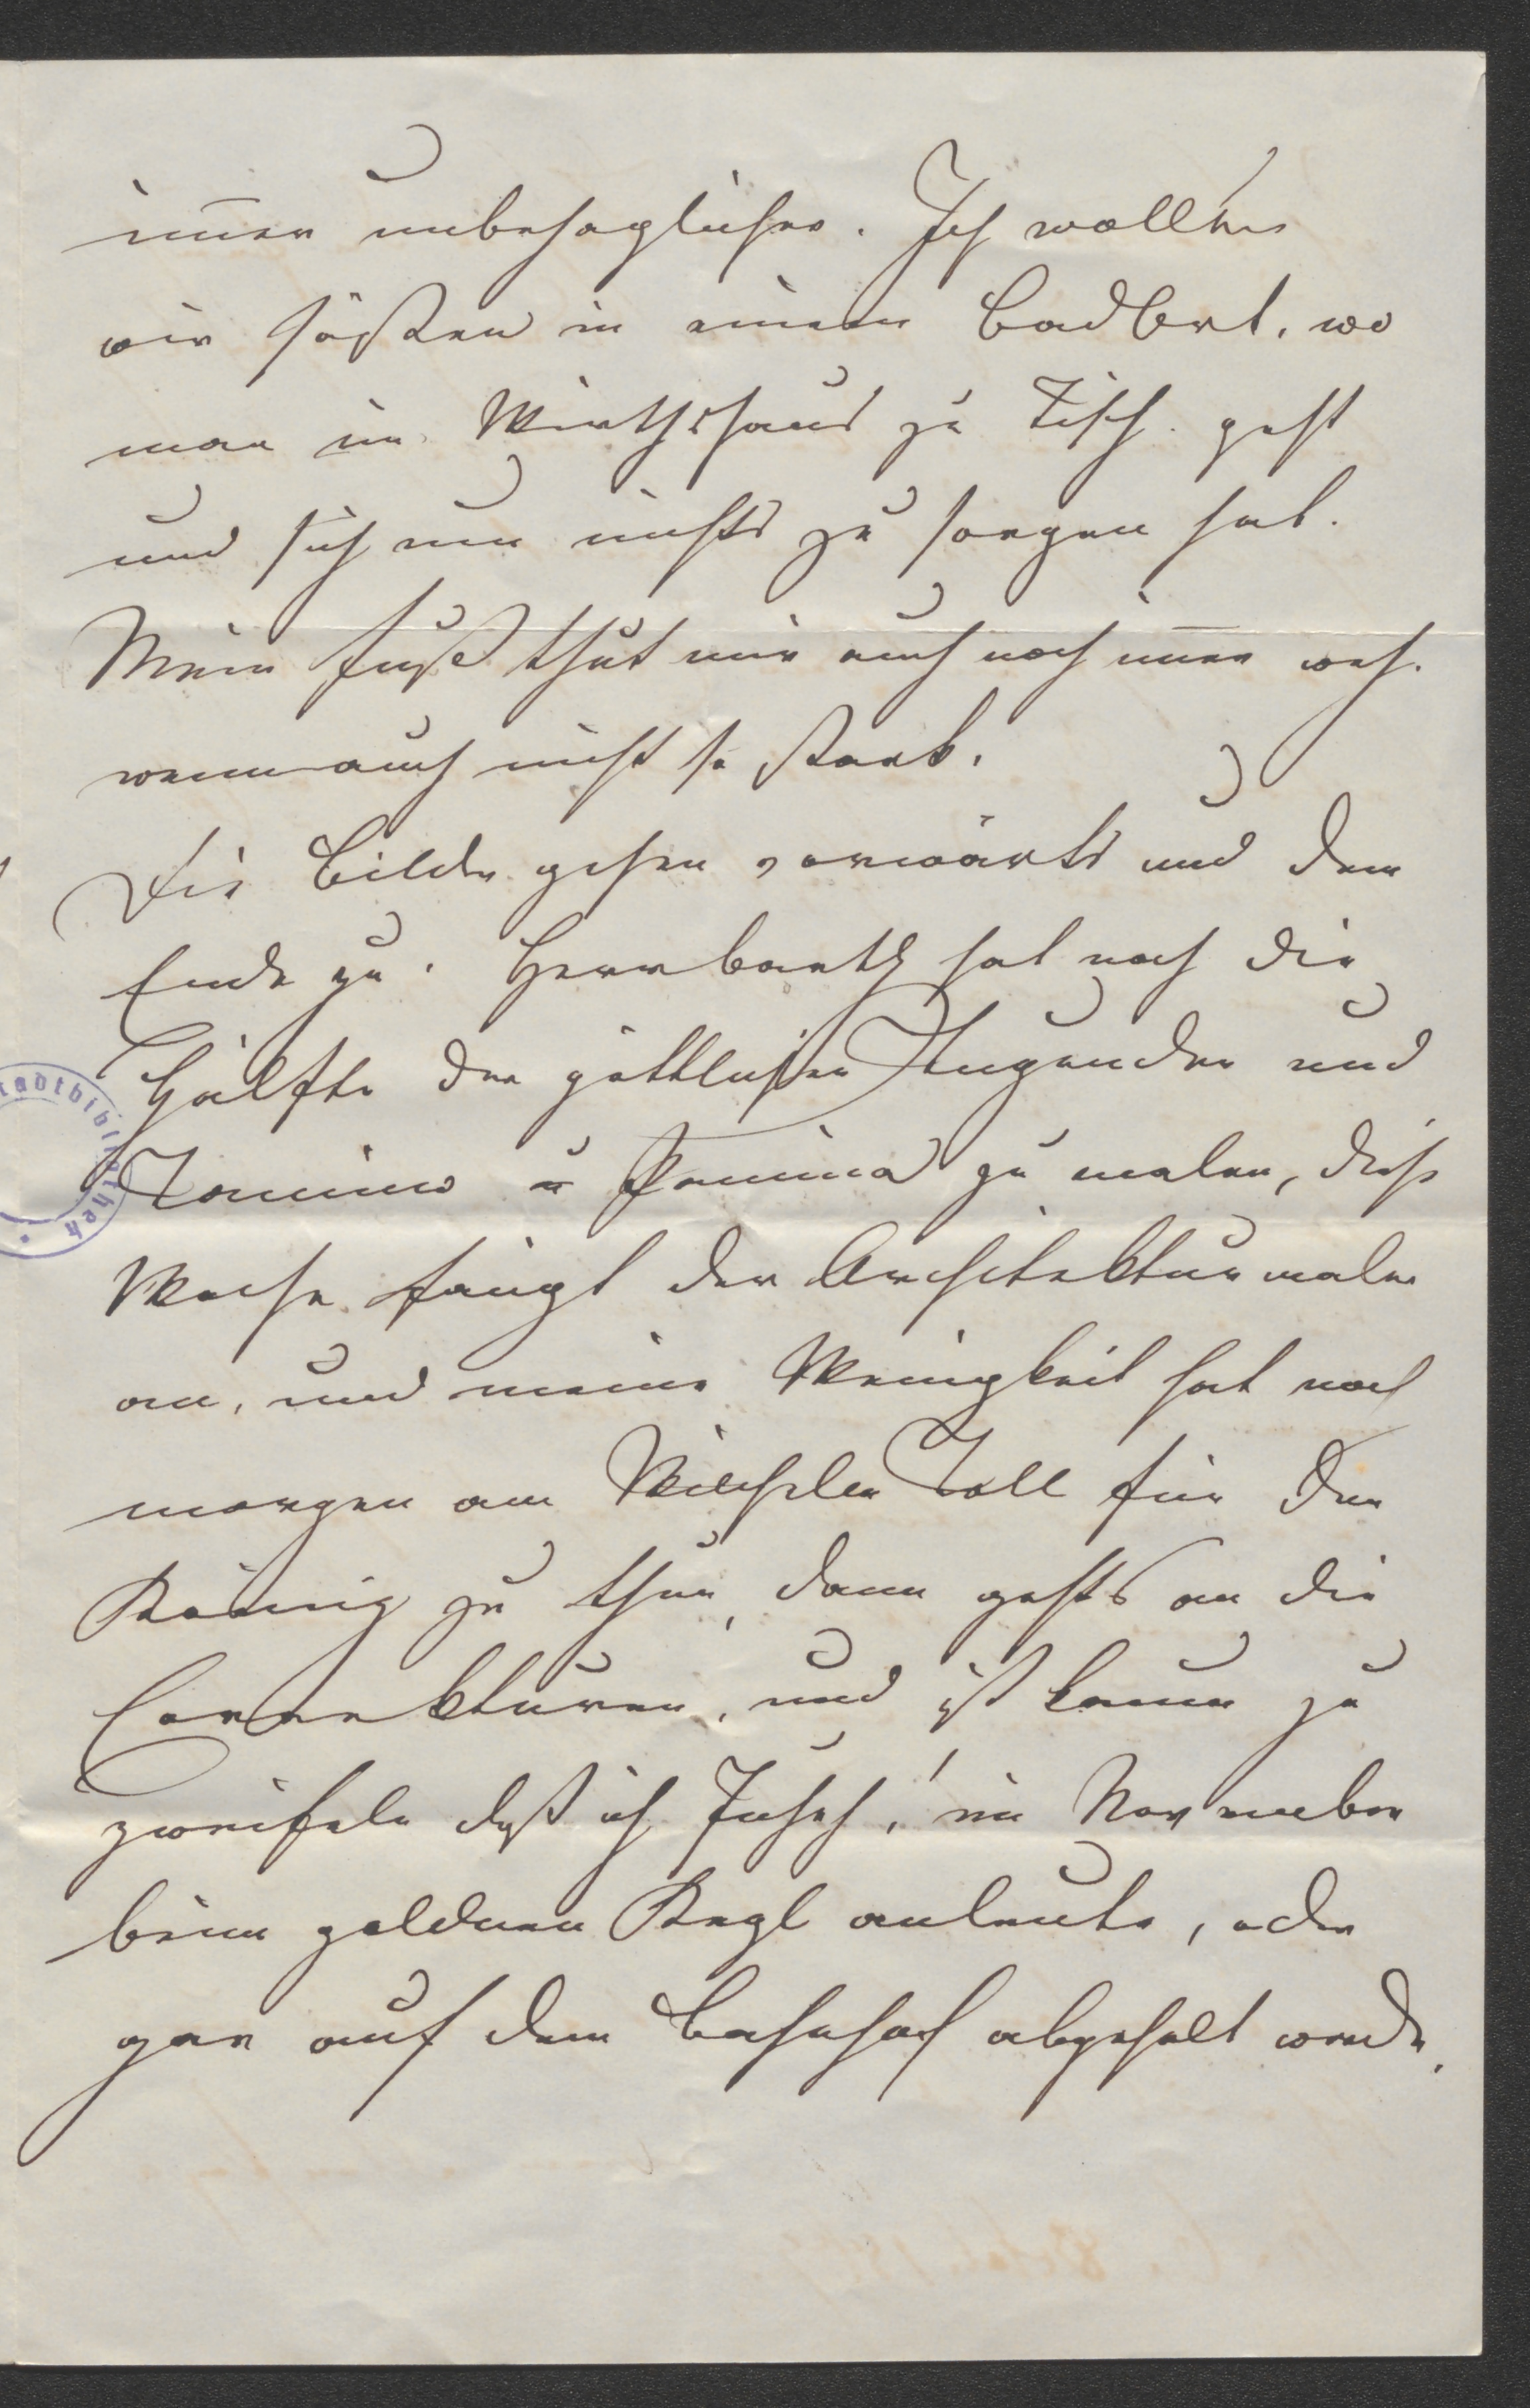 im̄er unbehaglicher. Ich wollte
wir säßen in einem Badort, wo
man im Wirthshaus zu Tisch geht
und sich um nichts zu sorgen hat.
Mein Fuß thut mir auch noch im̄er weh.
wenn auch nicht so stark.
Die Bilder gehen vorwärts und dem
Ende zu. Herrbarth hat noch die
Hälfte der göttlichen Tugenden und
Tamino u Pamina zu malen, diese
Woche fängt der Architekturmaler
an, und meine Wenigkeit hat noch
morgen am Tell für den
König zu thun, dann gehts an die
Correkturen, und ist kaum zu
zweifeln daß ich Juheh! im November
beim goldnen Kegl anleute, oder
gar auf dem Bahnhof abgeholt werde.
Stadtbibliothek